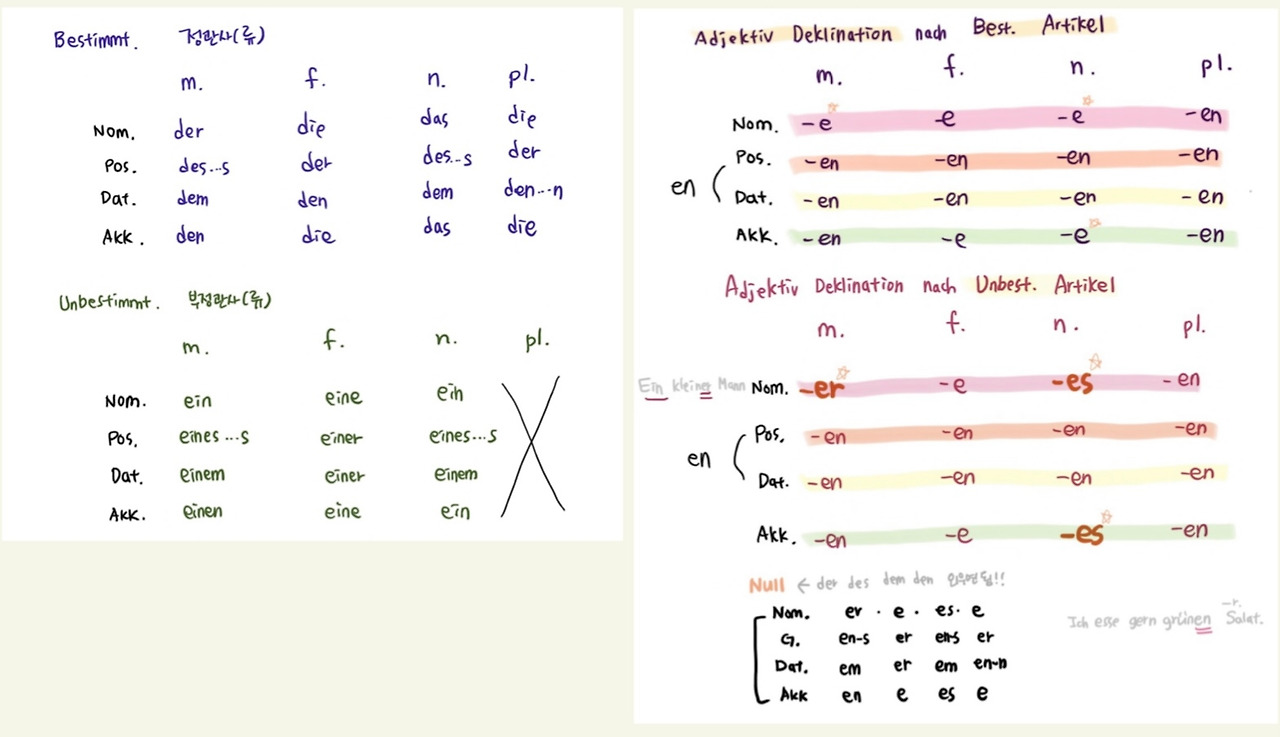 Bestimmt. 정관사(류)
m. f. n. pl.
Nom. der die das die
Pos. des...s der des...s der
Dat. dem den dem den...n
Akk. den die das die
Unbestimmt. 부정관사(류)
m. f. n. pl.
Nom. ein eine ein
Pos. eines...s einer eines...s
Dat. einem einer einem
Akk. einen eine ein
Adjektiv Deklination nach Best. Artikel
m. f. n. pl.
Nom. -e -e -e -en
Pos. -en -en -en -en
en
Dat. -en -en -en -en
Akk. -en -e -e -en
Adjektiv Deklination nach Unbest. Artikel
m. f. n. pl.
Ein kleiner Mann Nom. -er -e -es -en
Pos. -en -en -en -en
en
Dat. -en -en -en -en
Akk. -en -e -es -en
Null ← der des dem den 외우면 됨!!
Nom. er · e · es · e
G. en-s er en-s er
Dat. em er em en-n
Akk en e es e
-r.
Ich esse gern grünen Salat.